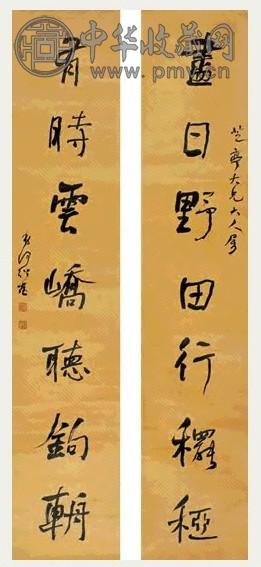 中华收藏网
芝亭大兄大人属
盡日野田行䆉稏
有時雲嶠聽鉤輈
何紹基